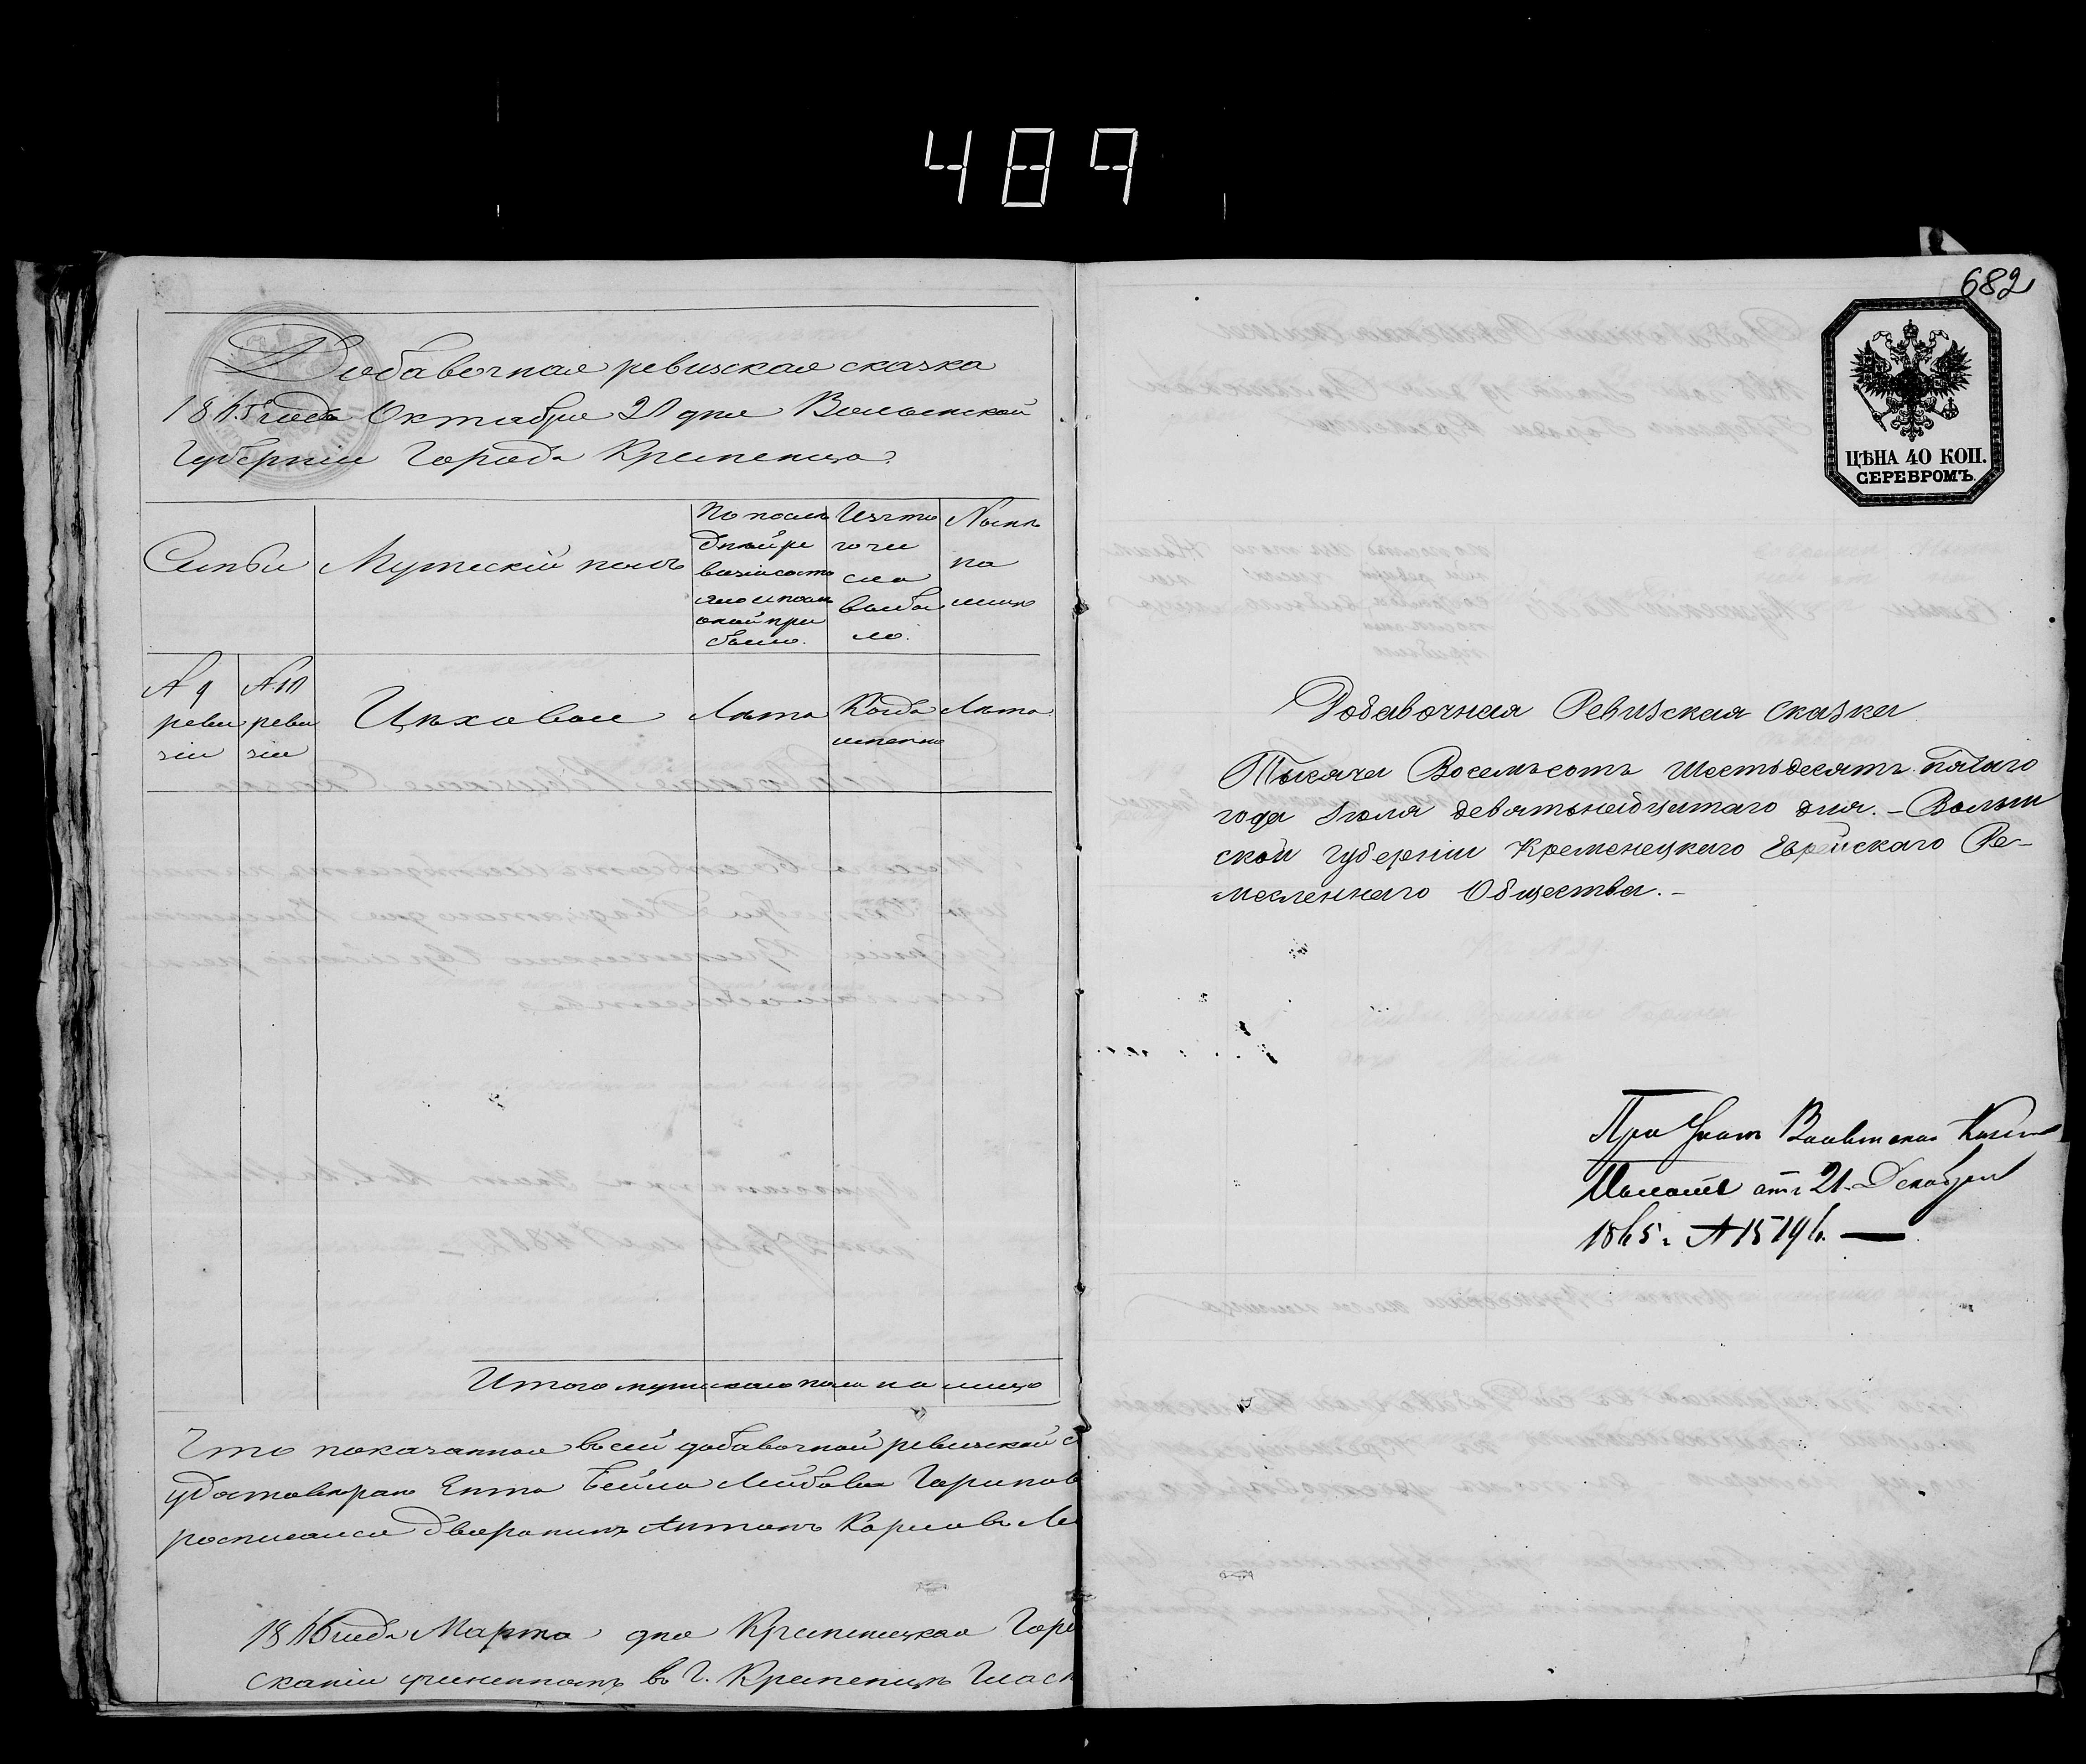 489
Добавочная ревизская сказка
1865 года Октября 20 дня Волынской
Губерніи Города Кременца.
Семьи
Мужескій полъ
По послѣ
дней ре
визіи состо
яло и посл
оной при
было.
Изъ то
го чи
сла
выбы
ло.
Нынѣ
на
лицо
№ 9
реви
зіи
№ 10
реви
зіи
Цѣховые
Лѣта
Когда
именно
Лѣта
Итого мужескаго пола на лицо
Что показанное въ сей добавочной ревизской с
удостовѣряю Ента Бейла Лейбова
росписался дворянинъ Антонъ Карловъ
1866 года Марта дня Кременецкая Горо
скапіи в Г. Кременцѣ
682
ЦѢНА 40 КОП.
СЕРЕБРОМЪ.
Добавочная Ревизская сказка
Тысяча Восемьсотъ Шестьдесятъ пятаго
года Іюля девятьнадцатаго дня. – Волын
ской губерніи Кременецкаго Еврейскаго Ре-
месленнаго Общества. –
При Указѣ Волынской Казен
Палаты отъ 21 Декабря
1865 г. № 15196. —